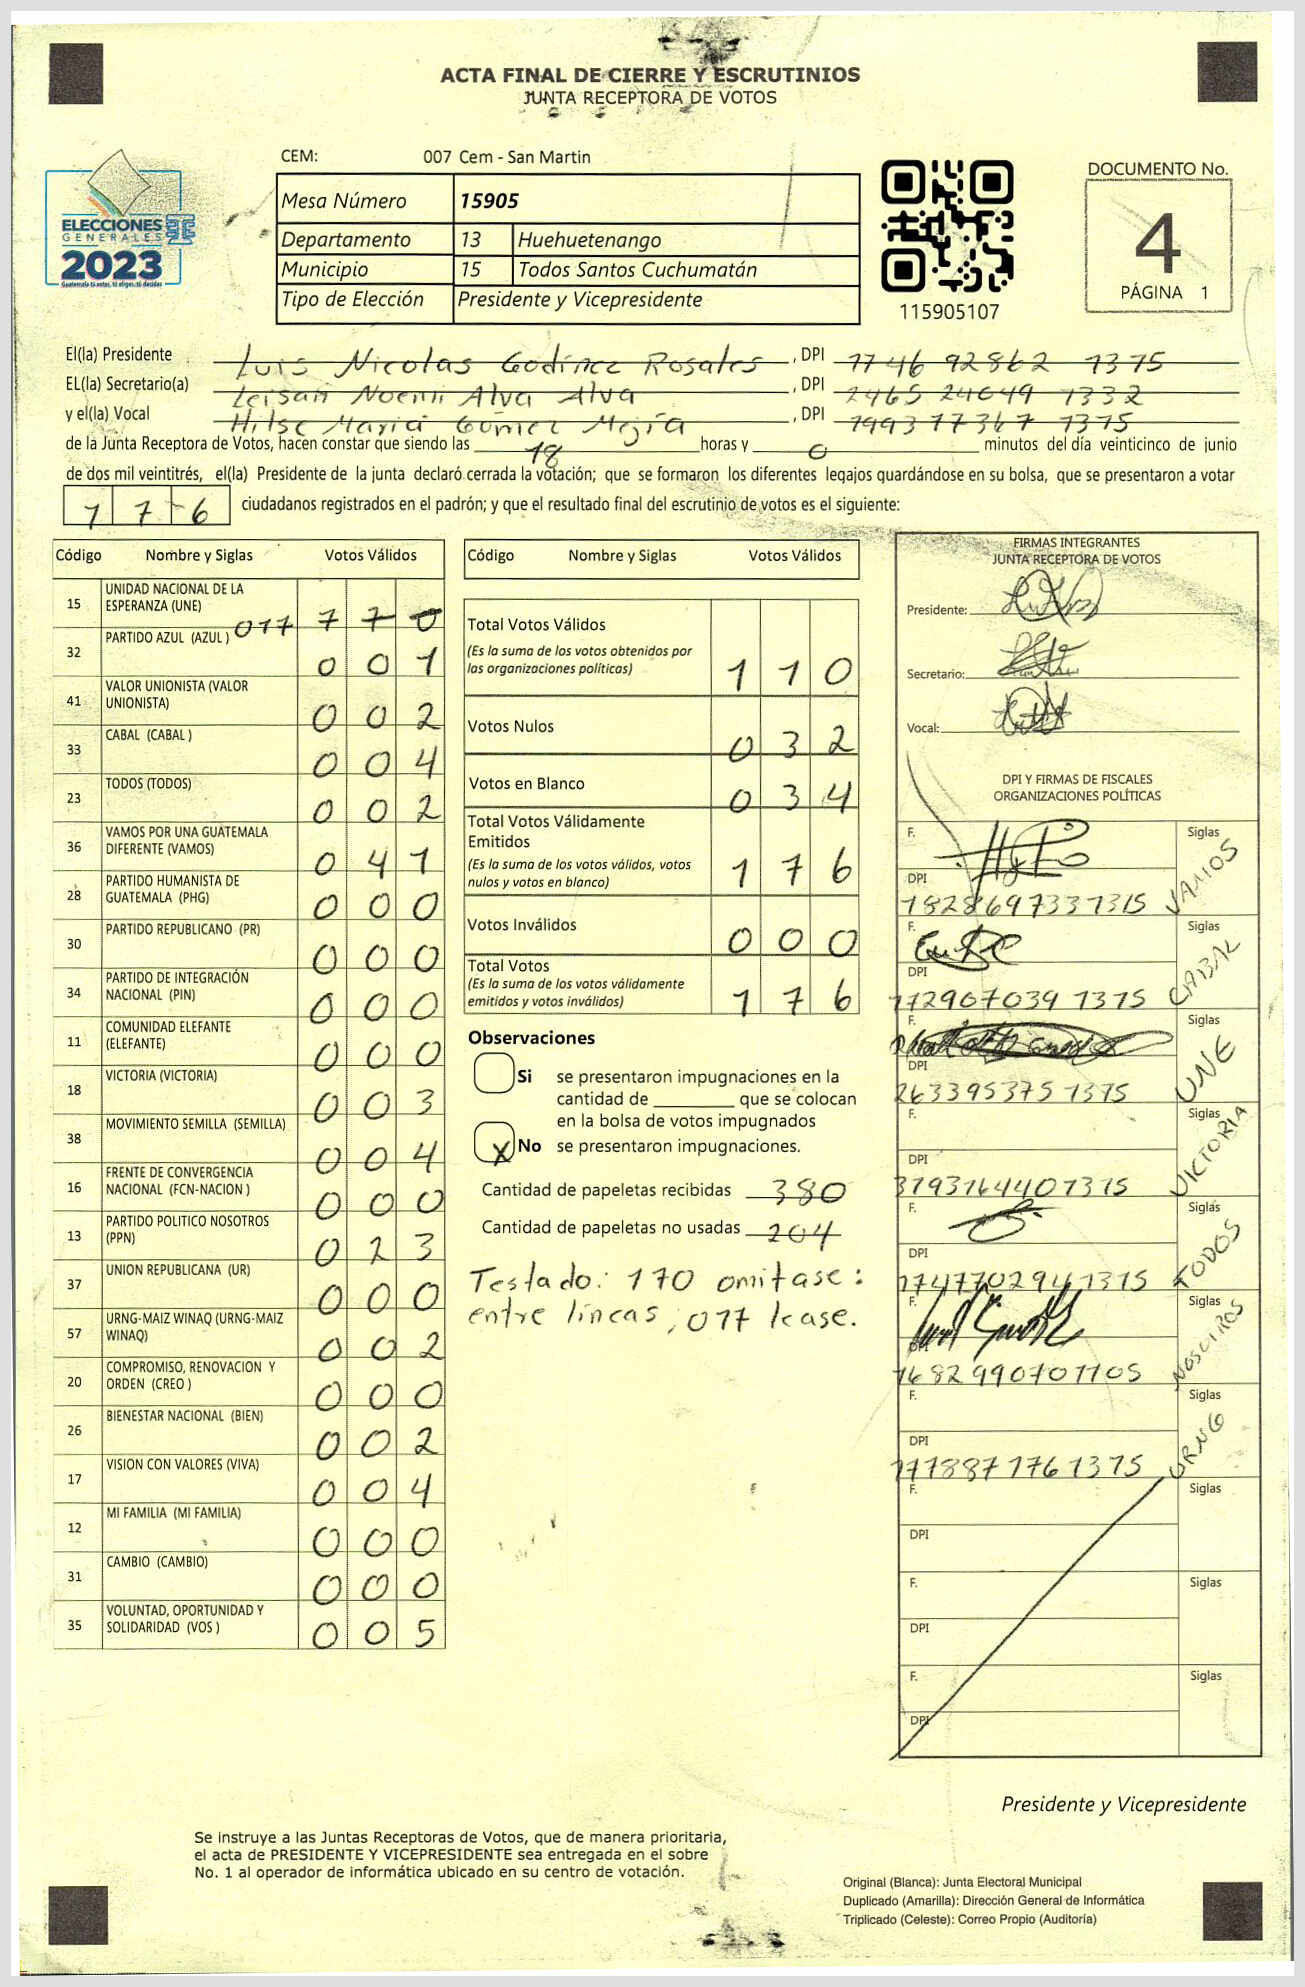 ACTA FINAL DE CIERRE Y ESCRUTINIOS
JUNTA RECEPTORA DE VOTOS
CEM: 007 Cem - San Martin
Mesa Número 15905
Departamento 13 Huehuetenango
Municipio 15 Todos Santos Cuchumatán
Tipo de Elección Presidente y Vicepresidente
ELECCIONES
GENERALES
2023
Guatemala tú votas, tú eliges, tú decides
115905107
DOCUMENTO No.
4
PÁGINA 1
El(la) Presidente Luis Nicolas Godínez Rosales, DPI 1746 92862 1315
EL(la) Secretario(a) Leisari Noemi Alva Alva, DPI 2465 24049 1332
y el(la) Vocal Hilse María Gómez Mejía, DPI 1993 77367 1315
de la Junta Receptora de Votos, hacen constar que siendo las 18 horas y 0 minutos del día veinticinco de junio
de dos mil veintitrés, el(la) Presidente de la junta declaró cerrada la votación; que se formaron los diferentes legajos guardándose en su bolsa, que se presentaron a votar
176 ciudadanos registrados en el padrón; y que el resultado final del escrutinio de votos es el siguiente:
Código Nombre y Siglas Votos Válidos
15 UNIDAD NACIONAL DE LA
ESPERANZA (UNE) 017 170
32 PARTIDO AZUL (AZUL ) 001
41 VALOR UNIONISTA (VALOR
UNIONISTA) 002
33 CABAL (CABAL ) 004
23 TODOS (TODOS) 002
36 VAMOS POR UNA GUATEMALA
DIFERENTE (VAMOS) 041
28 PARTIDO HUMANISTA DE
GUATEMALA (PHG) 000
30 PARTIDO REPUBLICANO (PR) 000
34 PARTIDO DE INTEGRACIÓN
NACIONAL (PIN) 000
11 COMUNIDAD ELEFANTE
(ELEFANTE) 000
18 VICTORIA (VICTORIA) 003
38 MOVIMIENTO SEMILLA (SEMILLA) 004
16 FRENTE DE CONVERGENCIA
NACIONAL (FCN-NACION ) 000
13 PARTIDO POLITICO NOSOTROS
(PPN) 023
37 UNION REPUBLICANA (UR) 000
57 URNG-MAIZ WINAQ (URNG-MAIZ
WINAQ) 002
20 COMPROMISO, RENOVACION Y
ORDEN (CREO ) 000
26 BIENESTAR NACIONAL (BIEN) 002
17 VISION CON VALORES (VIVA) 004
12 MI FAMILIA (MI FAMILIA) 000
31 CAMBIO (CAMBIO) 000
35 VOLUNTAD, OPORTUNIDAD Y
SOLIDARIDAD (VOS ) 005
Código Nombre y Siglas Votos Válidos
Total Votos Válidos
(Es la suma de los votos obtenidos por
las organizaciones políticas) 110
Votos Nulos 032
Votos en Blanco 034
Total Votos Válidamente
Emitidos
(Es la suma de los votos válidos, votos
nulos y votos en blanco) 176
Votos Inválidos 000
Total Votos
(Es la suma de los votos válidamente
emitidos y votos inválidos) 176
Observaciones
Si se presentaron impugnaciones en la
cantidad de ________ que se colocan
en la bolsa de votos impugnados
X No se presentaron impugnaciones.
Cantidad de papeletas recibidas 380
Cantidad de papeletas no usadas 204
Testado: 170 omitase:
entre líneas, 017 lease.
FIRMAS INTEGRANTES
JUNTA RECEPTORA DE VOTOS
Presidente:
Secretario:
Vocal:
DPI Y FIRMAS DE FISCALES
ORGANIZACIONES POLÍTICAS
F. Siglas VAMOS
DPI 1828697331315
F. Siglas CABAL
DPI 172907039 1315
F. Siglas UNE
DPI 263395375 1315
F. Siglas VICTORIA
DPI 3193164401315
F. Siglas TODOS
DPI 1747702941315
F. Siglas NOSOTROS
DPI 1682990701105
F. Siglas URNG
DPI 177887 1761315
F. Siglas
DPI
F. Siglas
DPI
F. Siglas
DPI
Presidente y Vicepresidente
Se instruye a las Juntas Receptoras de Votos, que de manera prioritaria,
el acta de PRESIDENTE Y VICEPRESIDENTE sea entregada en el sobre
No. 1 al operador de informática ubicado en su centro de votación.
Original (Blanca): Junta Electoral Municipal
Duplicado (Amarilla): Dirección General de Informática
Triplicado (Celeste): Correo Propio (Auditoría)